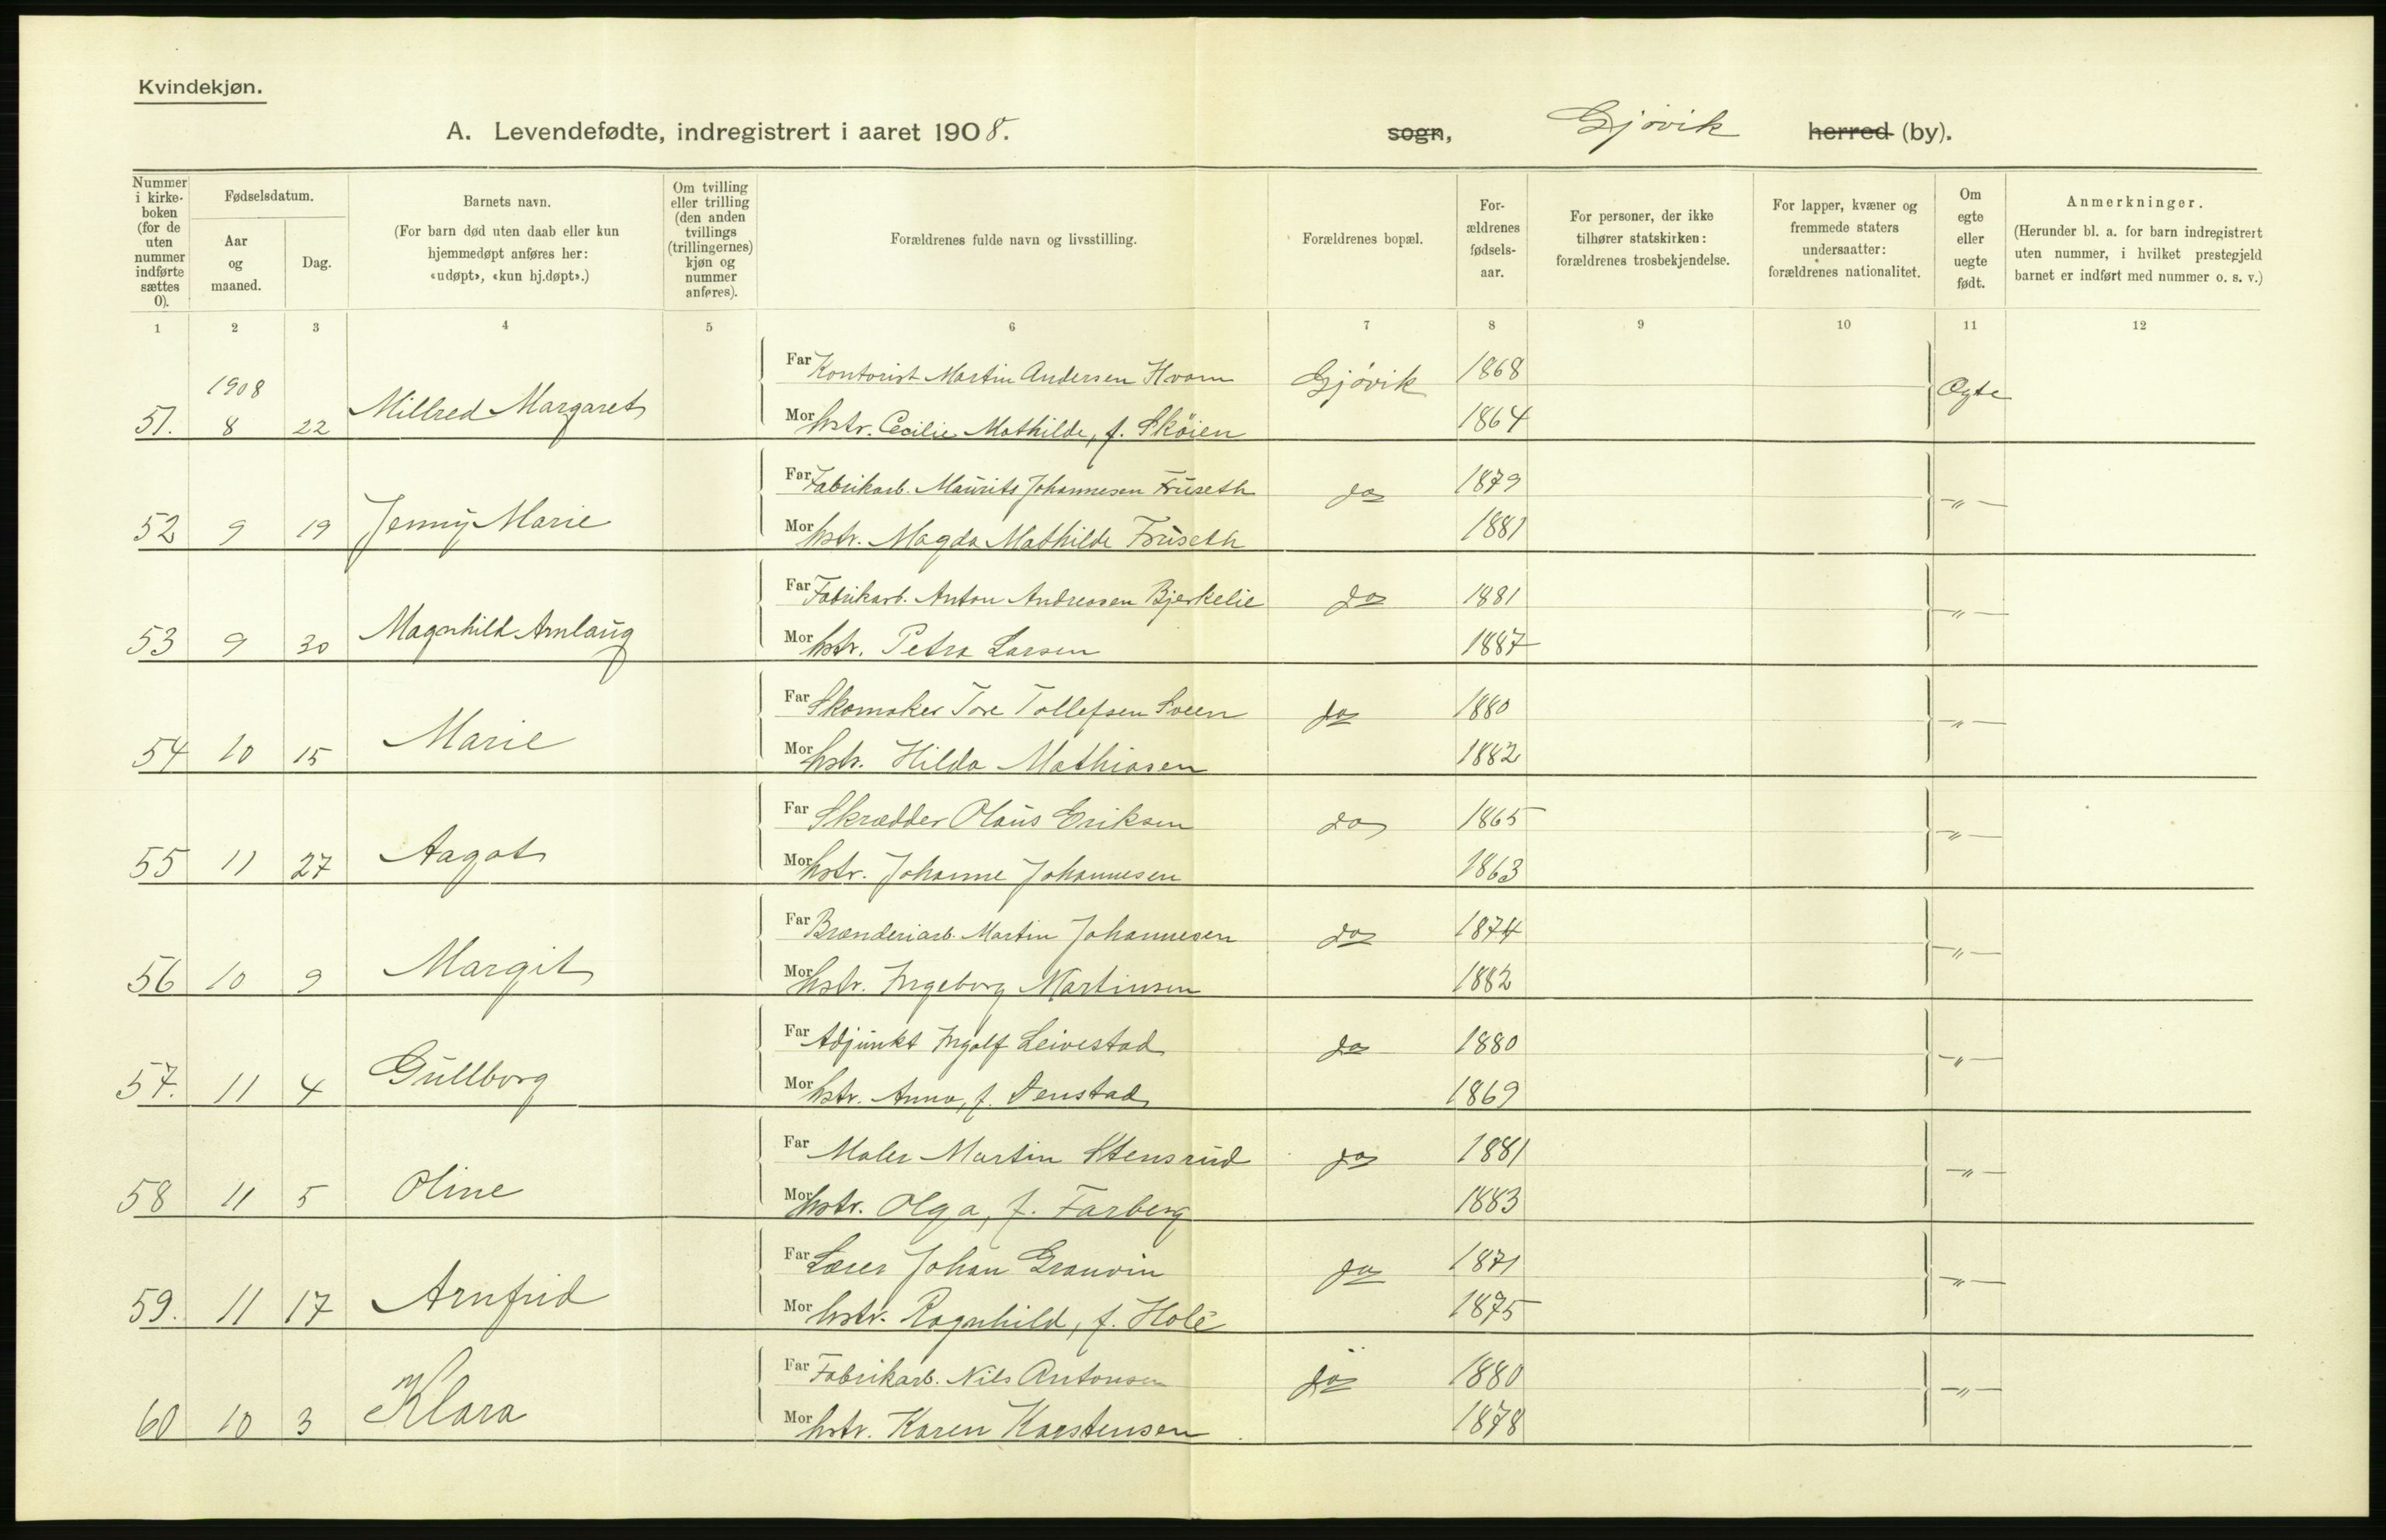 Kvindekjøn.
A. Levendefødte, indregistrert i aaret 1908. sogn, Gjøvik herred (by).
Nummer i kirkeboken (for de uten nummer indførte sættes 0).
Fødselsdatum.
Aar og maaned.
Dag.
Barnets navn.
(For barn død uten daab eller kun hjemmedøpt anføres her: «udøpt», «kun hj.døpt».)
Om tvilling eller trilling (den anden tvillings (trillingernes) kjøn og nummer anføres).
Forældrenes fulde navn og livsstilling.
Forældrenes bopæl.
For-ældrenes fødsels-aar.
For personer, der ikke tilhører statskirken: forældrenes trosbekjendelse.
For lapper, kvæner og fremmede staters undersaatter: forældrenes nationalitet.
Om egte eller uegte født.
Anmerkninger.
(Herunder bl. a. for barn indregistrert uten nummer, i hvilket prestegjeld barnet er indført med nummer o. s. v.)
1 2 3 4 5 6 7 8 9 10 11 12
1908
Far Kontorist Martin Andersen Hvam Gjøvik 1868 Ægte
51. 8 22 Millred Margaret Mor hstr. Cecilie Mathilde, f. Sköien 1864
Far Fabrikarb. Maurits Johannesen Fruseth do 1879 -"-
52 9 19 Jenny Marie Mor hstr. Magda Mathilde Fruseth 1881
Far Fabrikarb. Anton Andreasen Bjerkelie do 1881 -"-
53 9 30 Magnhild Arnlaug Mor hstr. Petra Larsen 1887
Far Skomaker Tore Tollefsen Sveen do 1880 -"-
54 10 15 Marie Mor hstr. Hilda Mathiasen 1882
Far Skrædder Olaus Eriksen do 1865 -"-
55 11 27 Aagot Mor hstr. Johanne Johannesen 1863
Far Brænderiarb. Martin Johannesen do 1874 -"-
56 10 9 Margit Mor hstr. Ingeborg Martinsen 1882
Far Adjunkt Ingolf Leivestad do 1880 -"-
57. 11 4 Gullborg Mor hstr. Anna, f. Denstad 1869
Far Maler Martin Stensrud do 1881 -"-
58 11 5 Oline Mor hstr. Olga, f. Farberg 1883
Far Lærer Johan Granvin do 1871 -"-
59. 11 17 Arnfrid Mor hstr. Ragnhild, f. Hole 1875
Far Fabrikarb. Nils Antonsen do 1880 -"-
60 10 3 Klara Mor hstr. Karen Karstensen 1878